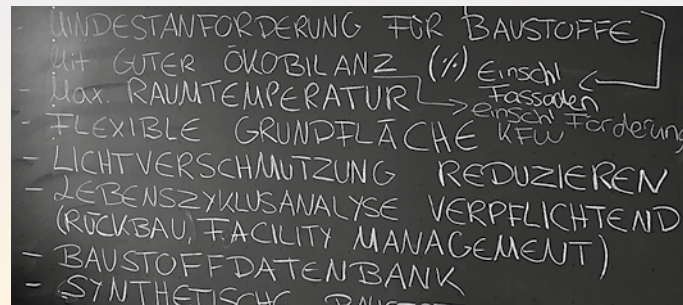 - MINDESTANFORDERUNG FÜR BAUSTOFFE
Mit GUTER ÖKOBILANZ (%) Einschl Fassaden
- Max. RAUMTEMPERATUR einschl Förderung KFW
- FLEXIBLE GRUNDFLÄCHE
- LICHTVERSCHMUTZUNG REDUZIEREN
- LEBENSZYKLUSANALYSE VERPFLICHTEND
(RÜCKBAU, FACILITY MANAGEMENT)
- BAUSTOFFDATENBANK
- SYNTHETISCHE